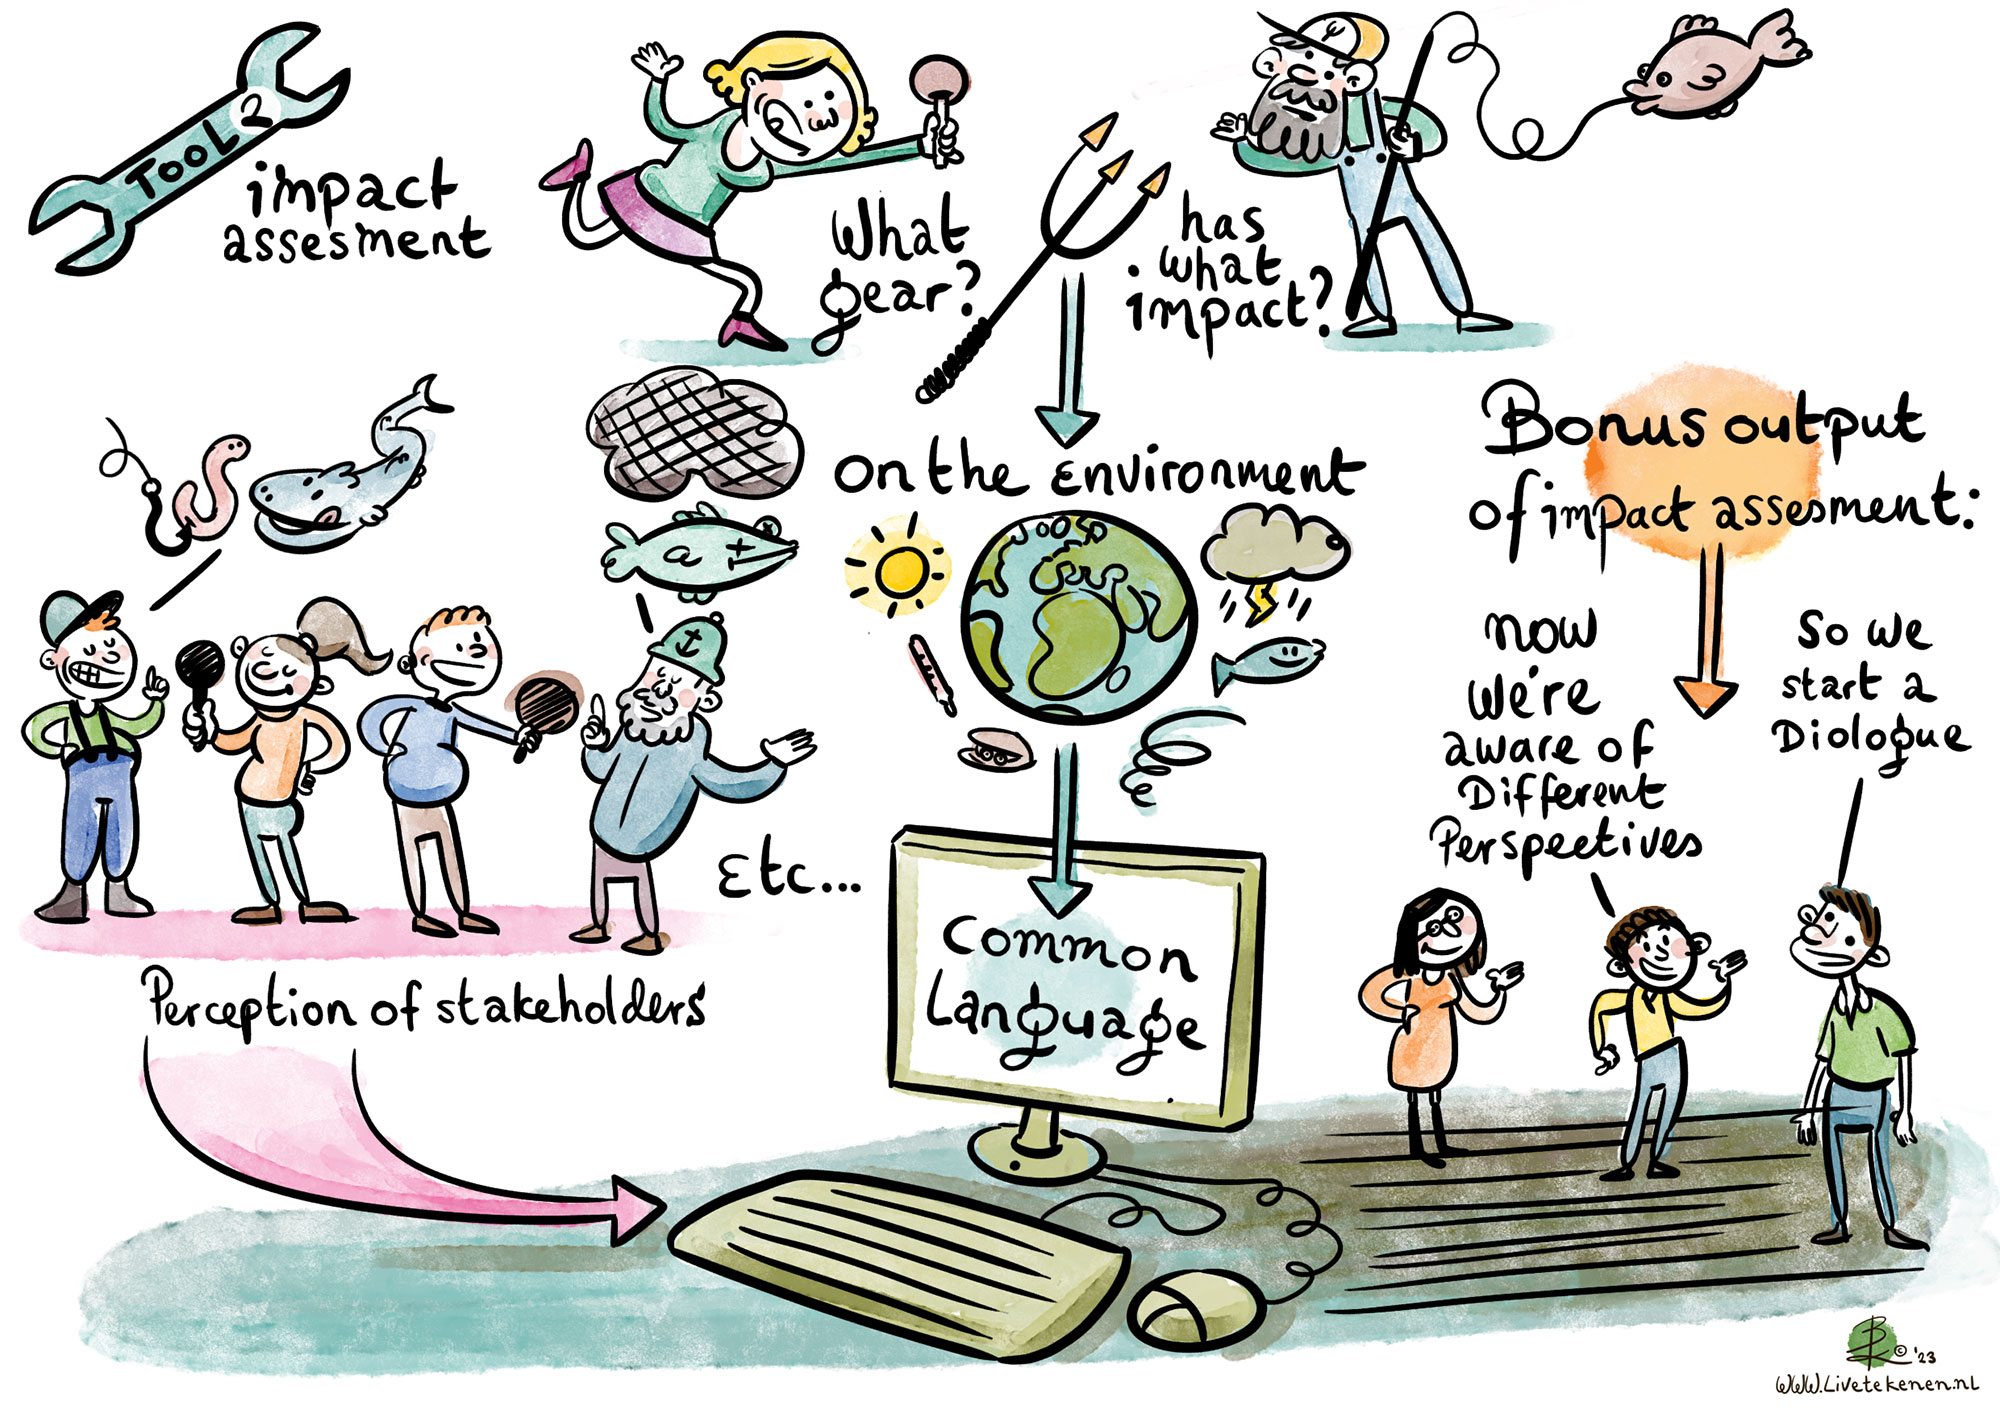 TOOL 2
impact
assesment
What
gear?
has
what
impact?
on the environment
Bonus output
of impact assesment:
now
we're
aware of
Different
Perspectives
So we
start a
Diologue
Etc...
Perception of stakeholders
Common
Language
© '23
www.Livetekenen.nl